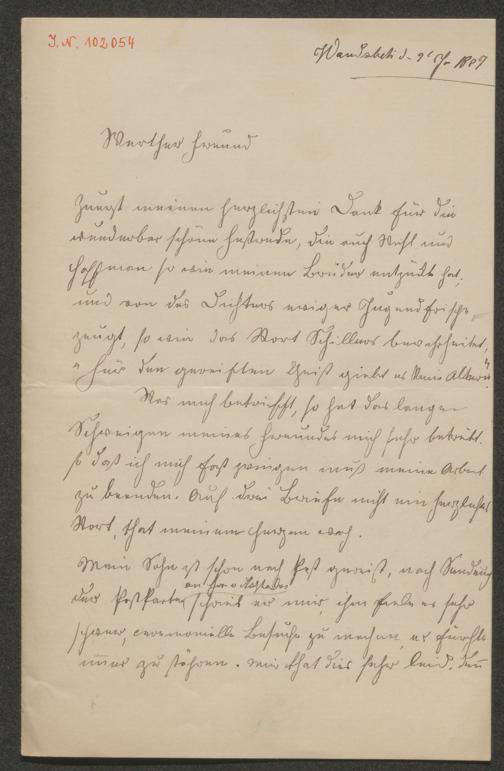 J. N. 102054
Wandsbek d. 9t Jn 1887
Werther Freund
Zuerst meinen herzlichsten Dank für die
wunderbar schöne Festrede, die auch Wohl und
Hoffman so wie meinen Bruder entzückt hat,
und von des Dichters ewiger Jugendfrische
zeugt, so wie das Wort Schillers bewahrheitet,
"Für den gereiften Geist giebt es kein Alter".
Was mich betrifft, so hat das lange
Schweigen meines Freundes mich sehr betrübt.
so daß ich mich fast zwingen muß meine Arbeit
zu beenden. Auf drei Briefe nicht ein herzliches
Wort, that meinem Herzen weh.
Mein Sohn ist schon nach Pest gereist, nach Sendung
der Postkarte, schrieb er mir, ihm fiele es sehr
schwer, ceremonielle Besuche zu machen, er fürchte
immer zu stöhren. Mir that dies sehr leid, den